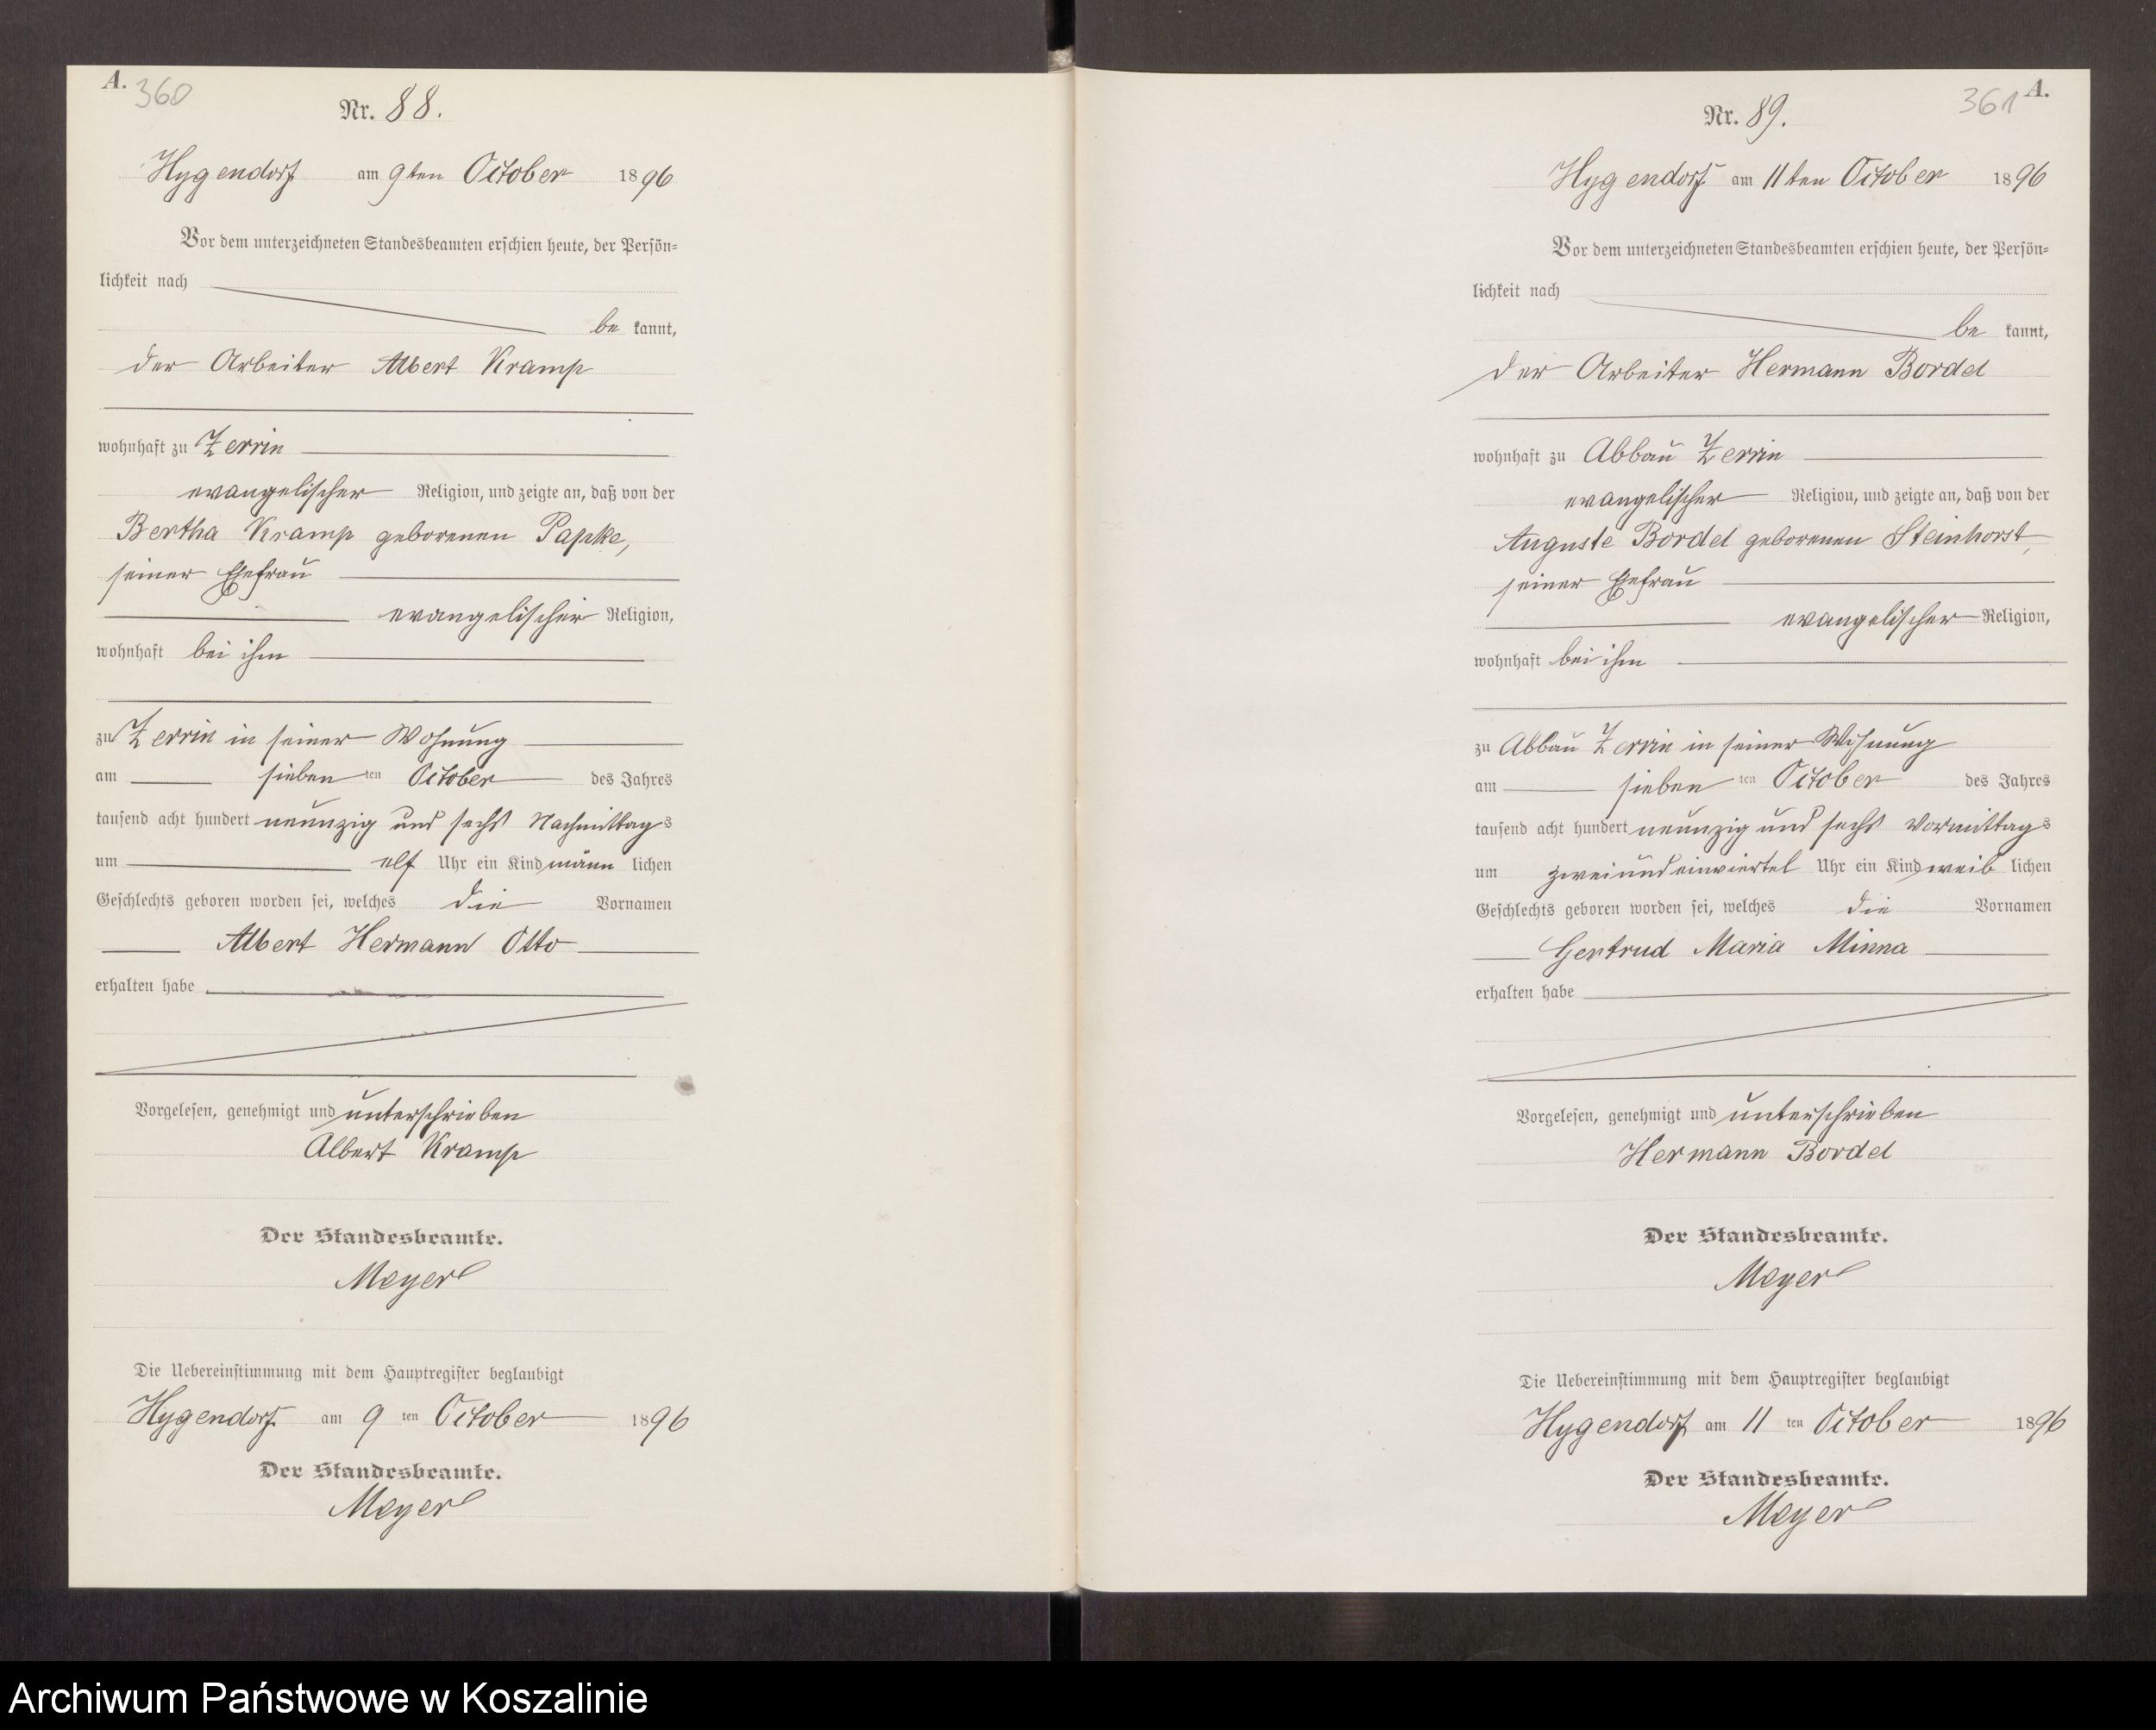 A. 360
Nr. 88.
Hygendorf am 9ten October 1896
Vor dem unterzeichneten Standesbeamten erschien heute, der Persön=
lichkeit nach
be kannt,
der Arbeiter Albert Kramp
wohnhaft zu Zerrin
evangelischer Religion, und zeigte an, daß von der
Bertha Kramp geborenen Papke,
seiner Ehefrau
evangelischer Religion,
wohnhaft bei ihm
zu Zerrin in seiner Wohnung
am sieben ten October des Jahres
tausend acht hundert neunzig und sechs Nachmittags
um elf Uhr ein Kind männ lichen
Geschlechts geboren worden sei, welches die Vornamen
Albert Hermann Otto
erhalten habe
Vorgelesen, genehmigt und unterschrieben
Albert Kramp
Der Standesbeamte.
Meyer
Die Uebereinstimmung mit dem Hauptregister beglaubigt
Hygendorf am 9 ten October 1896
Der Standesbeamte.
Meyer
361 A.
Nr. 89.
Hygendorf am 11ten October 1896
Vor dem unterzeichneten Standesbeamten erschien heute, der Persön=
lichkeit nach
be kannt,
der Arbeiter Hermann Bordel
wohnhaft zu Abbau Zerrin
evangelischer Religion, und zeigte an, daß von der
Auguste Bordel geborenen Steinhorst,
seiner Ehefrau
evangelischer Religion,
wohnhaft bei ihm
zu Abbau Zerrin in seiner Wohnung
am sieben ten October des Jahres
tausend acht hundert neunzig und sechs Vormittags
um zweiundeinviertel Uhr ein Kind weib lichen
Geschlechts geboren worden sei, welches die Vornamen
Gertrud Maria Minna
erhalten habe
Vorgelesen, genehmigt und unterschrieben
Hermann Bordel
Der Standesbeamte.
Meyer
Die Uebereinstimmung mit dem Hauptregister beglaubigt
Hygendorf am 11 ten October 1896
Der Standesbeamte.
Meyer
Archiwum Państwowe w Koszalinie